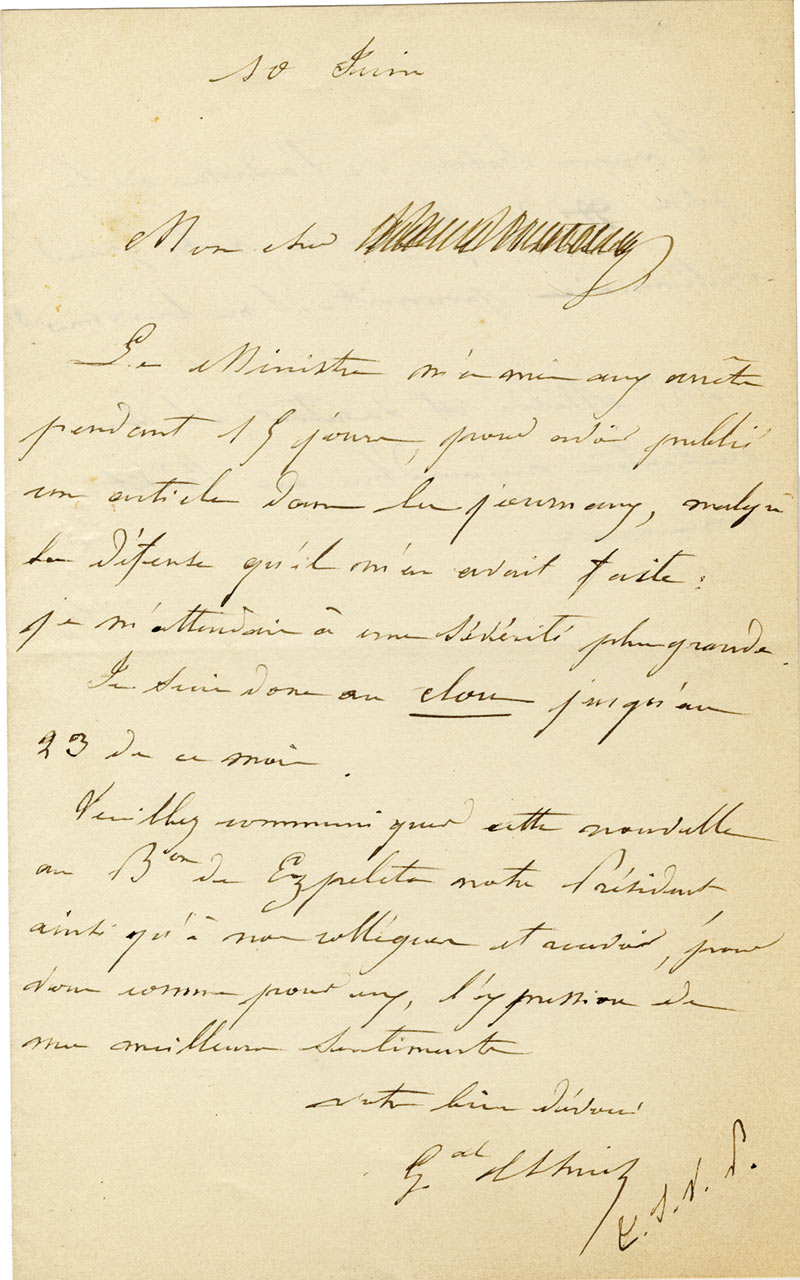 10 Juin
Mon cher
Le Ministre m'a mis aux arrêts
pendant 15 jours, pour avoir publié
un article dans les journaux, malgré
la défense qu'il m'en avait faite :
je m'attendais à une sévérité plus grande.
Je suis donc au clou jusqu'au
23 de ce mois.
Veuillez communiquer cette nouvelle
au Bon de Ezpeleta notre Président
ainsi qu'à nos collègues et recevoir, pour
vous comme pour eux, l'expression de
mes meilleurs sentiments
votre bien dévoué
Gal
T. S. V. P.